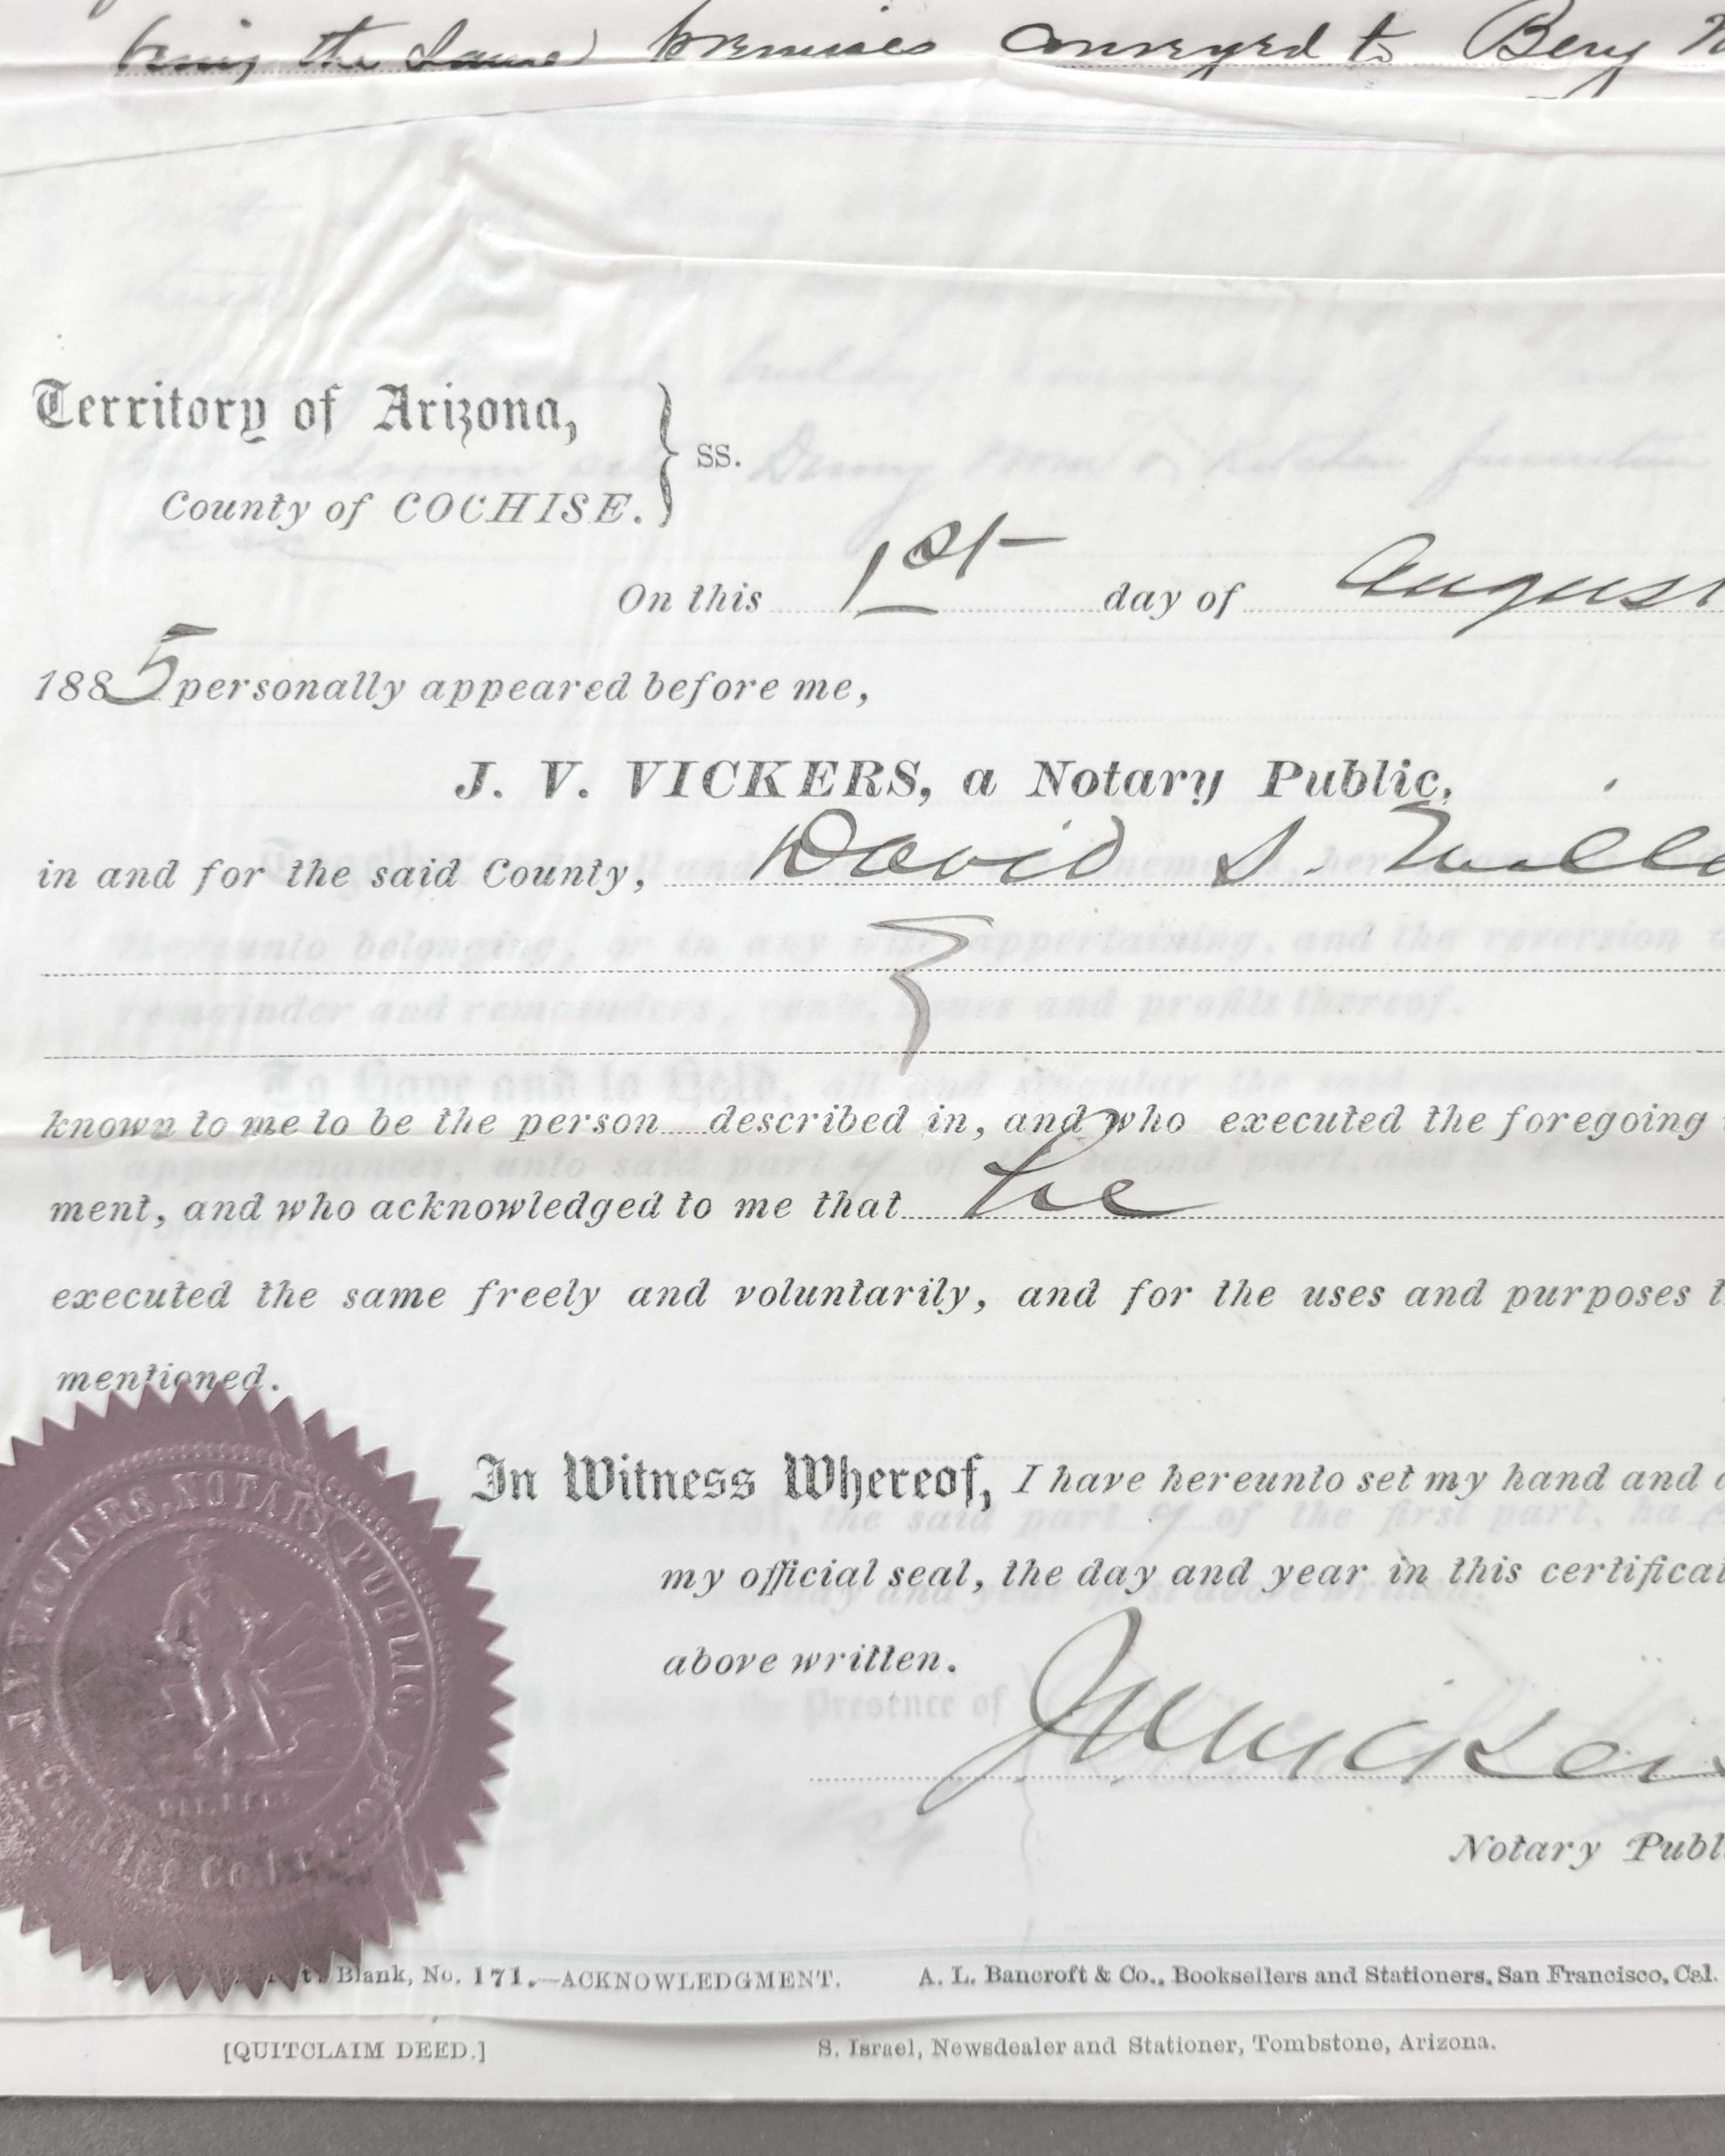 being the same premises conveyed to Benj
Territory of Arizona,
County of COCHISE. } ss.
On this 1st day of August
1885 personally appeared before me,
J. V. VICKERS, a Notary Public,
in and for the said County, David S.
known to me to be the person described in, and who executed the foregoing
ment, and who acknowledged to me that he
executed the same freely and voluntarily, and for the uses and purposes
mentioned.
In Witness Whereof, I have hereunto set my hand and
my official seal, the day and year in this certificat
above written.
J V Vickers
Notary Publ
J V VICKERS, NOTARY PUBLIC
Blank, No. 171.—ACKNOWLEDGMENT. A. L. Bancroft & Co., Booksellers and Stationers, San Francisco, Cal.
[QUITCLAIM DEED.] S. Israel, Newsdealer and Stationer, Tombstone, Arizona.